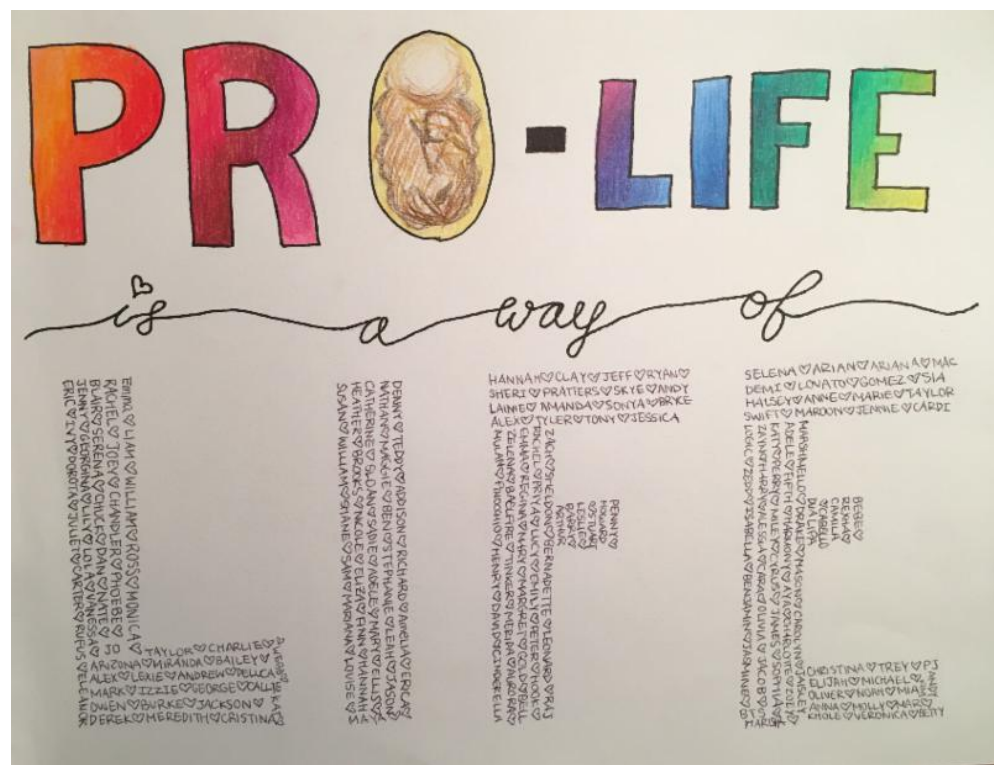 PRO-LIFE
is a way of
Emma♡LIAM♡WILLIAM♡ROSS♡MONICA♡
RACHEL♡JOEY♡CHANDLER♡PHOEBE♡
BLAIR♡SERENA♡CHUCK♡DAN♡NATE♡JO
JENNY♡GEORGINA♡LILY♡LOLA♡VANESSA♡
ERIC♡IVY♡DOROTA♡JULIET♡CARTER♡RUFUS
TAYLOR♡CHARLIE♡
ARIZONA♡MIRANDA♡BAILEY♡
ALEX♡LEXIE♡ANDREW♡DELUCA
MARK♡IZZIE♡GEORGE♡CALLIE
OWEN♡BURKE♡JACKSON♡
DEREK♡MEREDITH♡CRISTINA
DENNY♡TEDDY♡ADDISON♡RICHARD♡AMELIA♡ERICA♡
NATHAN♡MAGGIE♡BEN♡STEPHANIE♡LEAH♡JASON
CATHERINE♡SLOAN♡SADIE♡ADELE♡MARY♡ELLIS♡
HEATHER♡BROOKS♡NICOLE♡ELIZA♡FINN♡HANNAH
SUSAN♡WILLIAM♡SHANE♡SAM♡MARIANA♡LOUISE
HANNAH♡CLAY♡JEFF♡RYAN♡
SHERI♡PRATTERS♡SKYE♡ANDY
LAINIE♡AMANDA♡SONYA♡BRYCE
ALEX♡TYLER♡TONY♡JESSICA
ZACH♡SHELDON♡BERNADETTE♡LEONARD♡RAJ
RACHEL♡PRIYA♡LUCY♡EMILY♡PETER♡HOOK♡
EMMA♡REGINA♡MARY♡MARGRET♡GOLD♡BELL
ZELENA♡BAELFIRE♡TINKER♡MERIDA♡AURORA♡
MULAN♡PINOCCHIO♡HENRY♡DAVID♡CINDERELLA
PENNY♡
HOWARD
♡STUART
LESLIE♡
BARRY♡
ARTHUR
SELENA♡ARIAN♡ARIANA♡MAC
DEMI♡LOVATO♡GOMEZ♡SIA
HALSEY♡ANNE♡MARIE♡TAYLOR
SWIFT♡MAROON♡JENNIE♡CARDI
MARSHMELLO♡DRAKE♡MASON♡CAROLYN♡
ADELE♡FIFTH♡HARMONY♡AYA♡CHARLOTTE♡ZOEY♡
KATY♡PERRY♡MILEY♡CYRUS♡JAMES♡SOPHIA♡
ZAYN♡ALESSIA♡CARA♡OLIVIA♡JACOB♡
LOGIC♡ZEDD♡ISABELLA♡BENJAMIN♡JASMINE♡
BTS
MARCIA
BEBE♡
REXHA♡
CAMILA
♡CABELLO
DUA LIPA
CHRISTINA♡TREY♡PJ
ELIJAH♡MICHAEL♡
OLIVER♡NOAH♡MIA
ANNA♡MOLLY♡MAR♡
KHOLE♡VERONICA♡BETTY